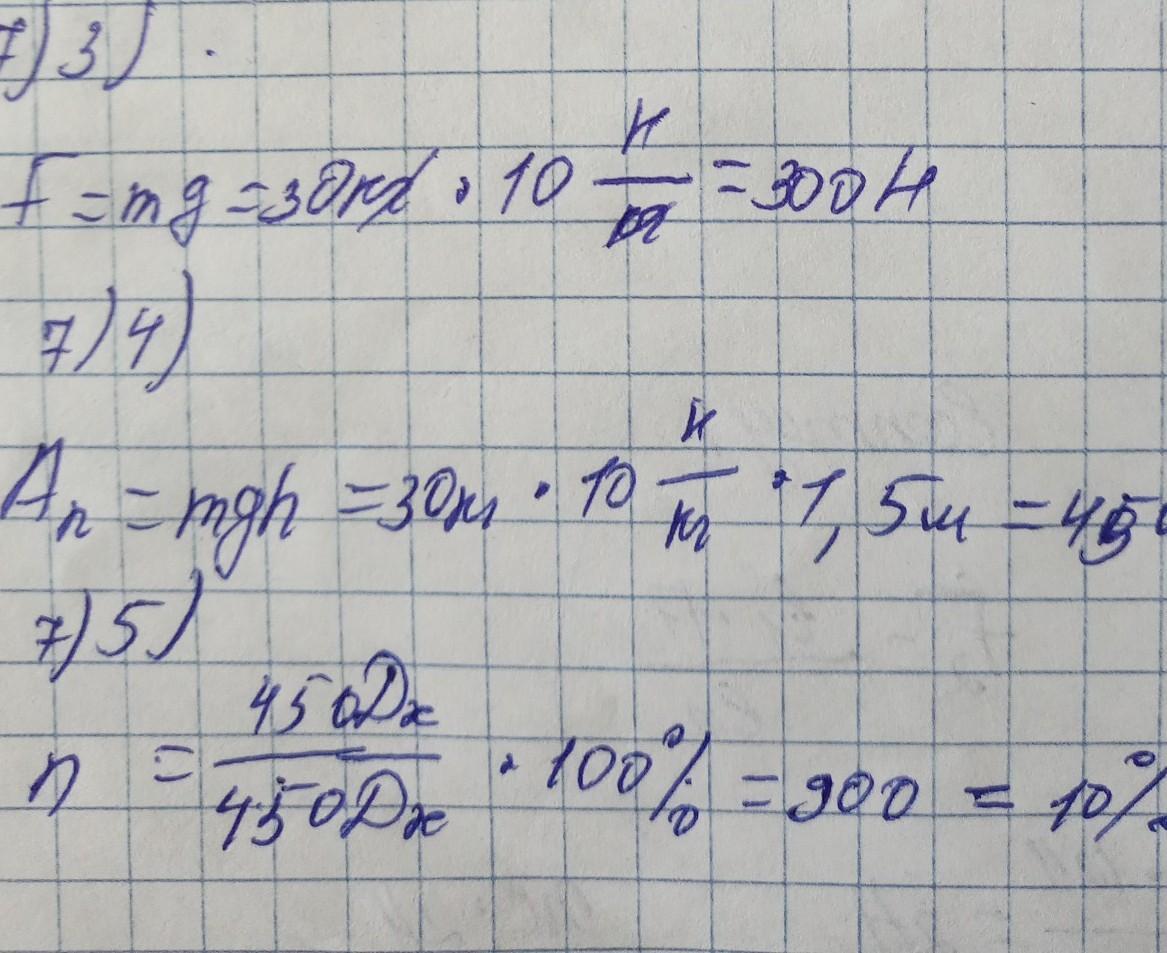 7)3)
F = mg = 30кг · 10 Н/кг = 300 Н
7)4)
Aп = mgh = 30кг · 10 Н/кг · 1,5м = 450
7)5)
n = 450Дж/450Дж · 100% = 900 = 10%